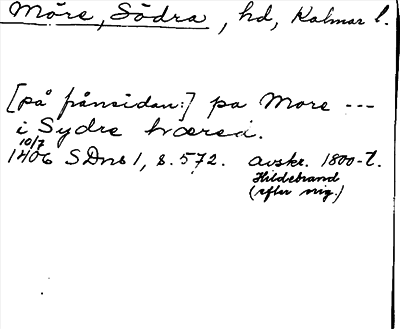 Möre, Södra, hd, Kalmar l.
[på frånsidan:] pa More ---
i Sydre hværed.
10/7
1406 SDns 1, s. 572. avskr. 1800-t.
Hildebrand
(efter orig.)